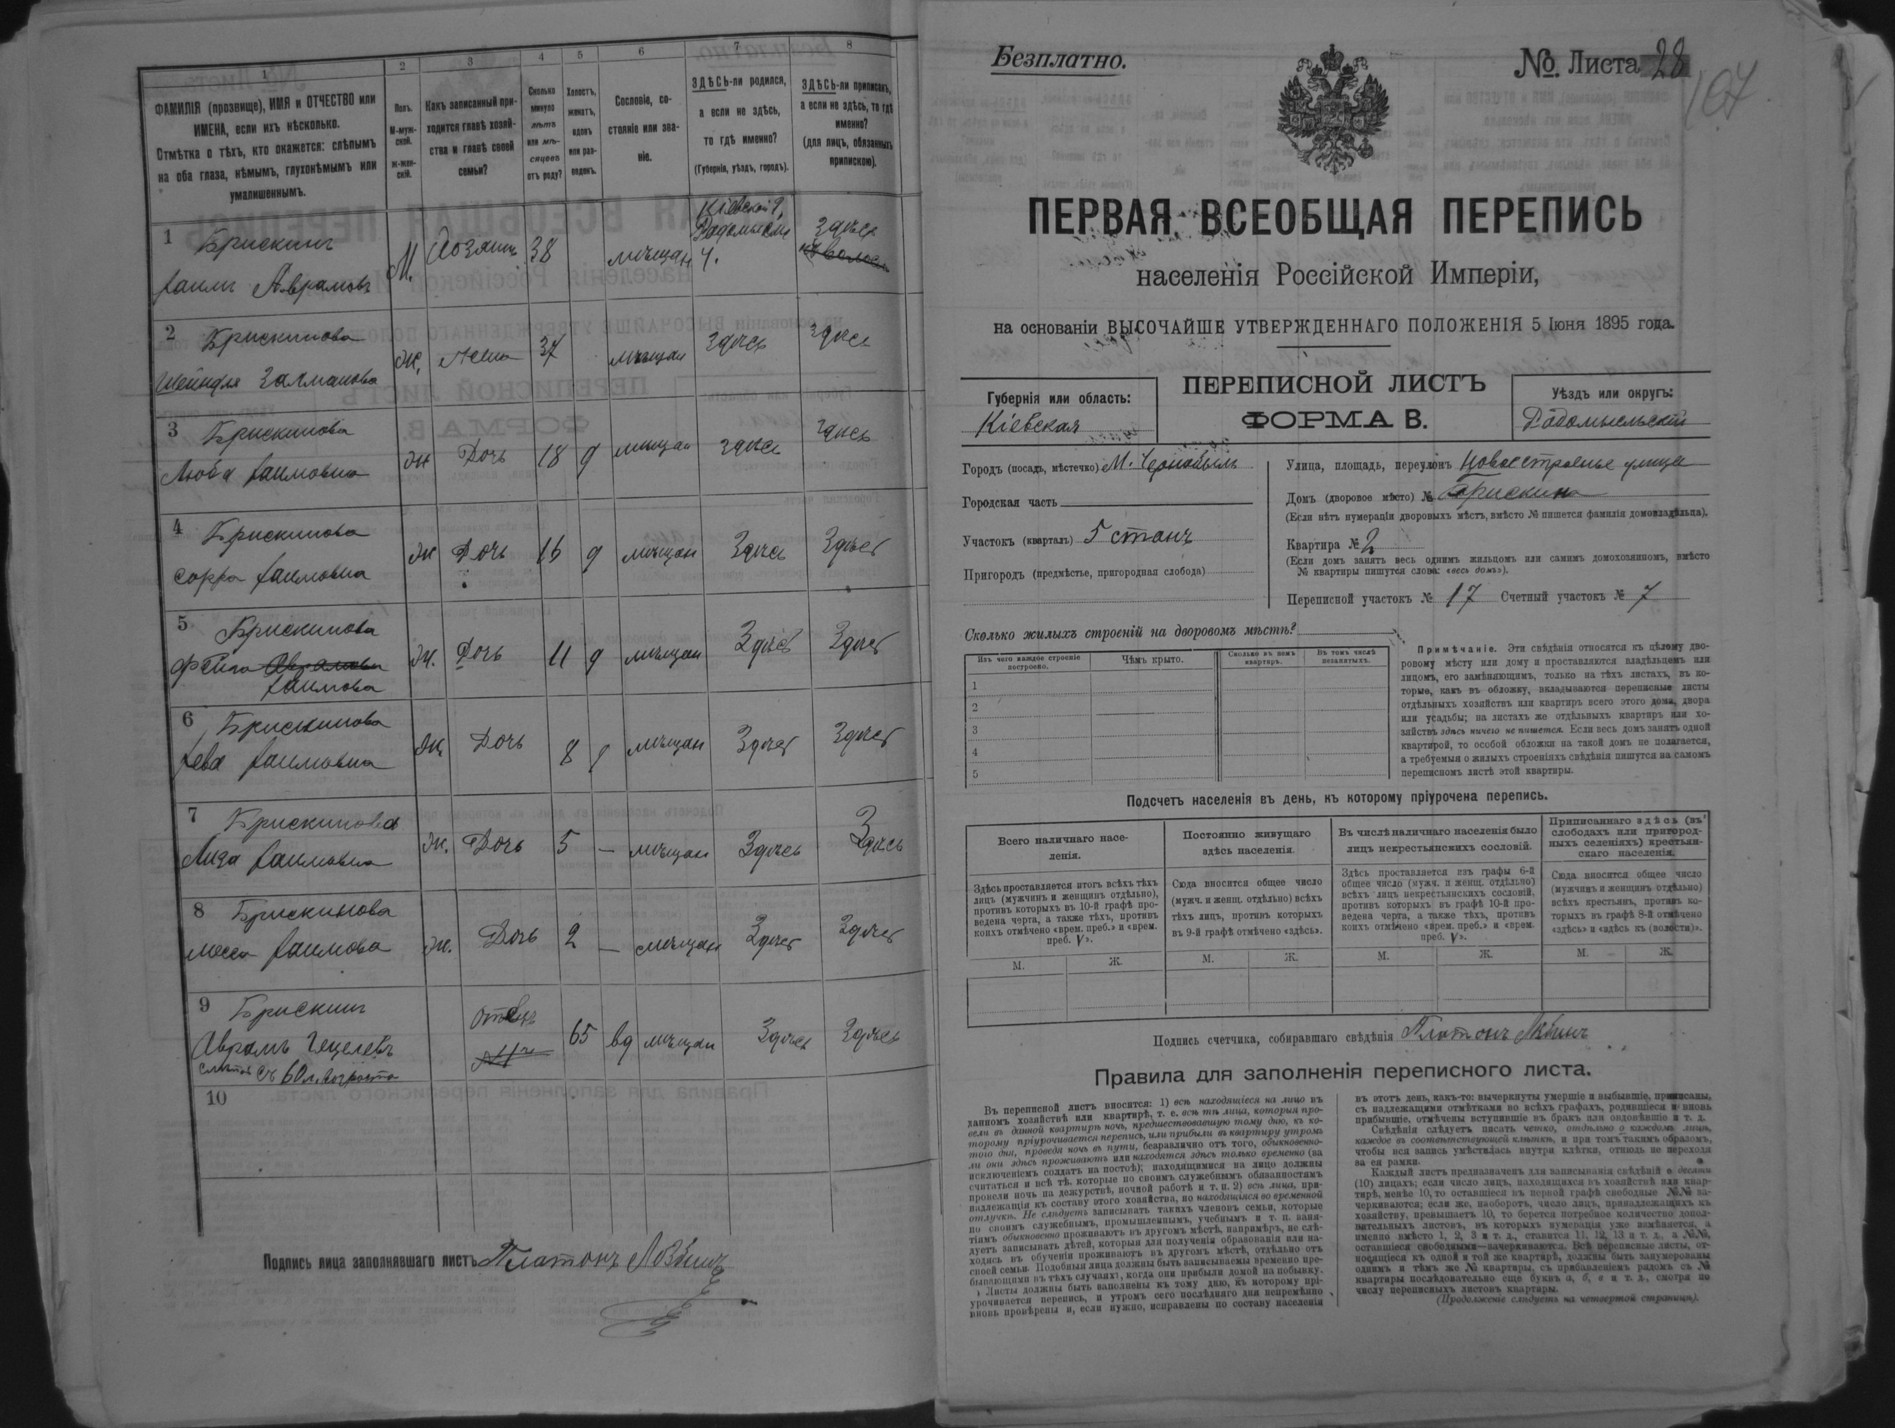 1 2 3 4 5 6 7 8
ФАМИЛІЯ (прозвище), ИМЯ и ОТЧЕСТВО или
ИМЕНА, если ихъ нѣсколько.
Отмѣтка о тѣхъ, кто окажется: слѣпымъ
на оба глаза, нѣмымъ, глухонѣмымъ или
умалишеннымъ.
Полъ.
М-муж-
ской.
Ж-жен-
скій.
Какъ записанный при-
ходится главѣ хозяй-
ства и главѣ своей
семьи?
Сколько
минуло
лѣтъ
или мѣ-
сяцевъ
отъ роду?
Холостъ,
женатъ,
вдовъ
или раз-
веденъ.
Сословіе, со-
стояніе или зва-
ніе.
ЗДѢСЬ-ли родился,
а если не здѣсь,
то гдѣ именно?
(Губернія, уѣздъ, городъ).
ЗДѢСЬ-ли приписанъ,
а если не здѣсь, то гдѣ
именно?
(для лицъ, обязанныхъ
припискою).
1 Брискинъ
Хаимъ Аврамовъ
М. Хозяинъ 38 мѣщан Кіевской г. Радомысл у. Здѣсь
2 Брискинова
Шейндля Залманова
Ж. Жена 37 мѣщан Здѣсь Здѣсь
3 Брискинова
Люба Хаимовна
Ж Дочь 18 д мѣщан Здѣсь Здѣсь
4 Брискинова
Сорра Хаимовна
Ж Дочь 16 д мѣщан Здѣсь Здѣсь
5 Брискинова
Фейга Аврамова
Хаимова
Ж. Дочь 11 д мѣщан Здѣсь Здѣсь
6 Брискинова
Хева Хаимовна
Ж Дочь 8 д мѣщан Здѣсь Здѣсь
7 Брискинова
Хаимовна
Ж. Дочь 5 — мѣщан Здѣсь Здѣсь
8 Брискинова
Хаимова
Ж. Дочь 2 — мѣщан Здѣсь Здѣсь
9 Брискинъ
Аврамъ Гецелевъ
съ 60 л. возраста
Отецъ 65 вд мѣщан Здѣсь Здѣсь
10
Подпись лица заполнявшаго листъ Платонъ
Безплатно.
№ Листа 28
167
ПЕРВАЯ ВСЕОБЩАЯ ПЕРЕПИСЬ
населенія Россійской Имперіи,
на основаніи ВЫСОЧАЙШЕ УТВЕРЖДЕННАГО ПОЛОЖЕНІЯ 5 Іюня 1895 года.
Губернія или область:
Кіевская
ПЕРЕПИСНОЙ ЛИСТЪ
ФОРМА В.
Уѣздъ или округъ:
Радомысльскій
Городъ (посадъ, мѣстечко) М. Чернобыль
Городская часть
Участокъ (кварталъ) 5 станъ
Пригородъ (предмѣстье, пригородная слобода)
Улица, площадь, переулокъ Новое строенье улица
Домъ (дворовое мѣсто) № Брискина
(Если нѣтъ нумераціи дворовыхъ мѣстъ, вмѣсто № пишется фамилія домовладѣльца).
Квартира № 2
(Если домъ занятъ весь однимъ жильцомъ или самимъ домохозяиномъ, вмѣсто
№ квартиры пишутся слова: «весь домъ»).
Переписной участокъ № 17 Счетный участокъ № 7
Сколько жилыхъ строеній на дворовомъ мѣстѣ?
Изъ чего каждое строеніе
построено.
Чѣмъ крыто.
Сколько въ немъ
квартиръ.
Въ томъ числѣ
незанятыхъ.
1
2
3
4
5
Примѣчаніе. Эти свѣдѣнія относятся къ цѣлому дво-
ровому мѣсту или дому и проставляются владѣльцемъ или
лицомъ, его замѣняющимъ, только на тѣхъ листахъ, въ ко-
торые, какъ въ обложку, вкладываются переписные листы
отдѣльныхъ хозяйствъ или квартиръ всего этого дома, двора
или усадьбы; на листахъ же отдѣльныхъ квартиръ или хо-
зяйствъ здѣсь ничего не пишется. Если весь домъ занятъ одной
квартирой, то особой обложки на такой домъ не полагается,
а требуемыя о жилыхъ строеніяхъ свѣдѣнія пишутся на самомъ
переписномъ листѣ этой квартиры.
Подсчетъ населенія въ день, къ которому пріурочена перепись.
Всего наличнаго насе-
ленія.
Постоянно живущаго
здѣсь населенія.
Въ числѣ наличнаго населенія было
лицъ некрестьянскихъ сословій.
Приписаннаго здѣсь (въ
слободахъ или пригород-
ныхъ селеніяхъ) крестьян-
скаго населенія.
Здѣсь проставляется итогъ всѣхъ тѣхъ
лицъ (мужчинъ и женщинъ отдѣльно),
противъ которыхъ въ 10-й графѣ про-
ведена черта, а также тѣхъ, противъ
коихъ отмѣчено «врем. преб.» и «врем.
преб. V».
Сюда вносится общее число
(мужч. и женщ. отдѣльно) всѣхъ
тѣхъ лицъ, противъ которыхъ
въ 9-й графѣ отмѣчено «здѣсь».
Здѣсь проставляется изъ графы 6-й
общее число (мужч. и женщ. отдѣльно)
всѣхъ лицъ некрестьянскихъ сословій,
противъ которыхъ въ графѣ 10-й про-
ведена черта, а также тѣхъ, противъ
коихъ отмѣчено «врем. преб.» и «врем.
преб. V».
Сюда вносится общее число
(мужчинъ и женщинъ отдѣльно)
всѣхъ крестьянъ, противъ ко-
торыхъ въ графѣ 8-й отмѣчено
«здѣсь» и «здѣсь къ (волости)».
М. Ж. М. Ж. М. Ж. М. Ж.
Подпись счетчика, собиравшаго свѣдѣнія Платонъ
Правила для заполненія переписного листа.
Въ переписной листъ вносятся: 1) всѣ находящіеся на лицо въ
данномъ хозяйствѣ или квартирѣ, т. е. всѣ тѣ лица, которыя про-
вели въ данной квартирѣ ночь, предшествовавшую тому дню, къ ко-
торому пріурочивается перепись, или прибыли въ квартиру утромъ
того дня, проведя ночь въ пути, безразлично отъ того, обыкновенно-
ли они здѣсь проживаютъ или находятся здѣсь только временно (за
исключеніемъ солдатъ на постоѣ); находящимися на лицо должны
считаться и всѣ тѣ, которые по своимъ служебнымъ обязанностямъ
провели ночь на дежурствѣ, ночной работѣ и т. п. 2) всѣ лица, при-
надлежащія къ составу этого хозяйства, но находящіяся во временной
отлучкѣ. Не слѣдуетъ записывать такихъ членовъ семьи, которые
по своимъ служебнымъ, промышленнымъ, учебнымъ и т. п. заня-
тіямъ обыкновенно проживаютъ въ другомъ мѣстѣ, напримѣръ, не слѣ-
дуетъ записывать дѣтей, которыя для полученія образованія или на-
ходясь въ обученіи проживаютъ въ другомъ мѣстѣ, отдѣльно отъ
своей семьи. Подобныя лица должны быть записываемы временно пре-
бывающими въ тѣхъ случаяхъ, когда они прибыли домой на побывку.
Листы должны быть заполнены къ тому дню, къ которому прі-
урочивается перепись, и утромъ сего послѣдняго дня непремѣнно
вновь провѣрены и, если нужно, исправлены по составу населенія
въ этотъ день, какъ-то: вычеркнуты умершіе и выбывшіе, приписаны,
съ надлежащими отмѣтками во всѣхъ графахъ, родившіеся и вновь
прибывшіе, отмѣчены вступившіе въ бракъ или овдовѣвшіе и т. д.
Свѣдѣнія слѣдуетъ писать четко, отдѣльно о каждомъ лицѣ,
каждое въ соотвѣтствующей клѣткѣ, и при томъ такимъ образомъ,
чтобы вся запись умѣстилась внутри клѣтки, отнюдь не переходя
за ея рамки.
Каждый листъ предназначенъ для записыванія свѣдѣній о десяти
(10) лицахъ; если число лицъ, находящихся въ хозяйствѣ или квар-
тирѣ, менѣе 10, то оставшіеся въ первой графѣ свободные №№ за-
черкиваются; если же, наоборотъ, число лицъ, принадлежащихъ къ
хозяйству, превышаетъ 10, то берется потребное количество допол-
нительныхъ листовъ, въ которыхъ нумерація уже измѣняется, а
именно вмѣсто 1, 2, 3 и т. д., ставится 11, 12, 13 и т. д., а №№,
оставшіеся свободными—зачеркиваются. Всѣ переписные листы, от-
носящіеся къ одной и той же квартирѣ, должны быть занумерованы
однимъ и тѣмъ же № квартиры, съ прибавленіемъ рядомъ съ №
квартиры послѣдовательно еще буквъ а, б, в и т. д., смотря по
числу переписныхъ листовъ квартиры.
(Продолженіе слѣдуетъ на четвертой страницѣ).